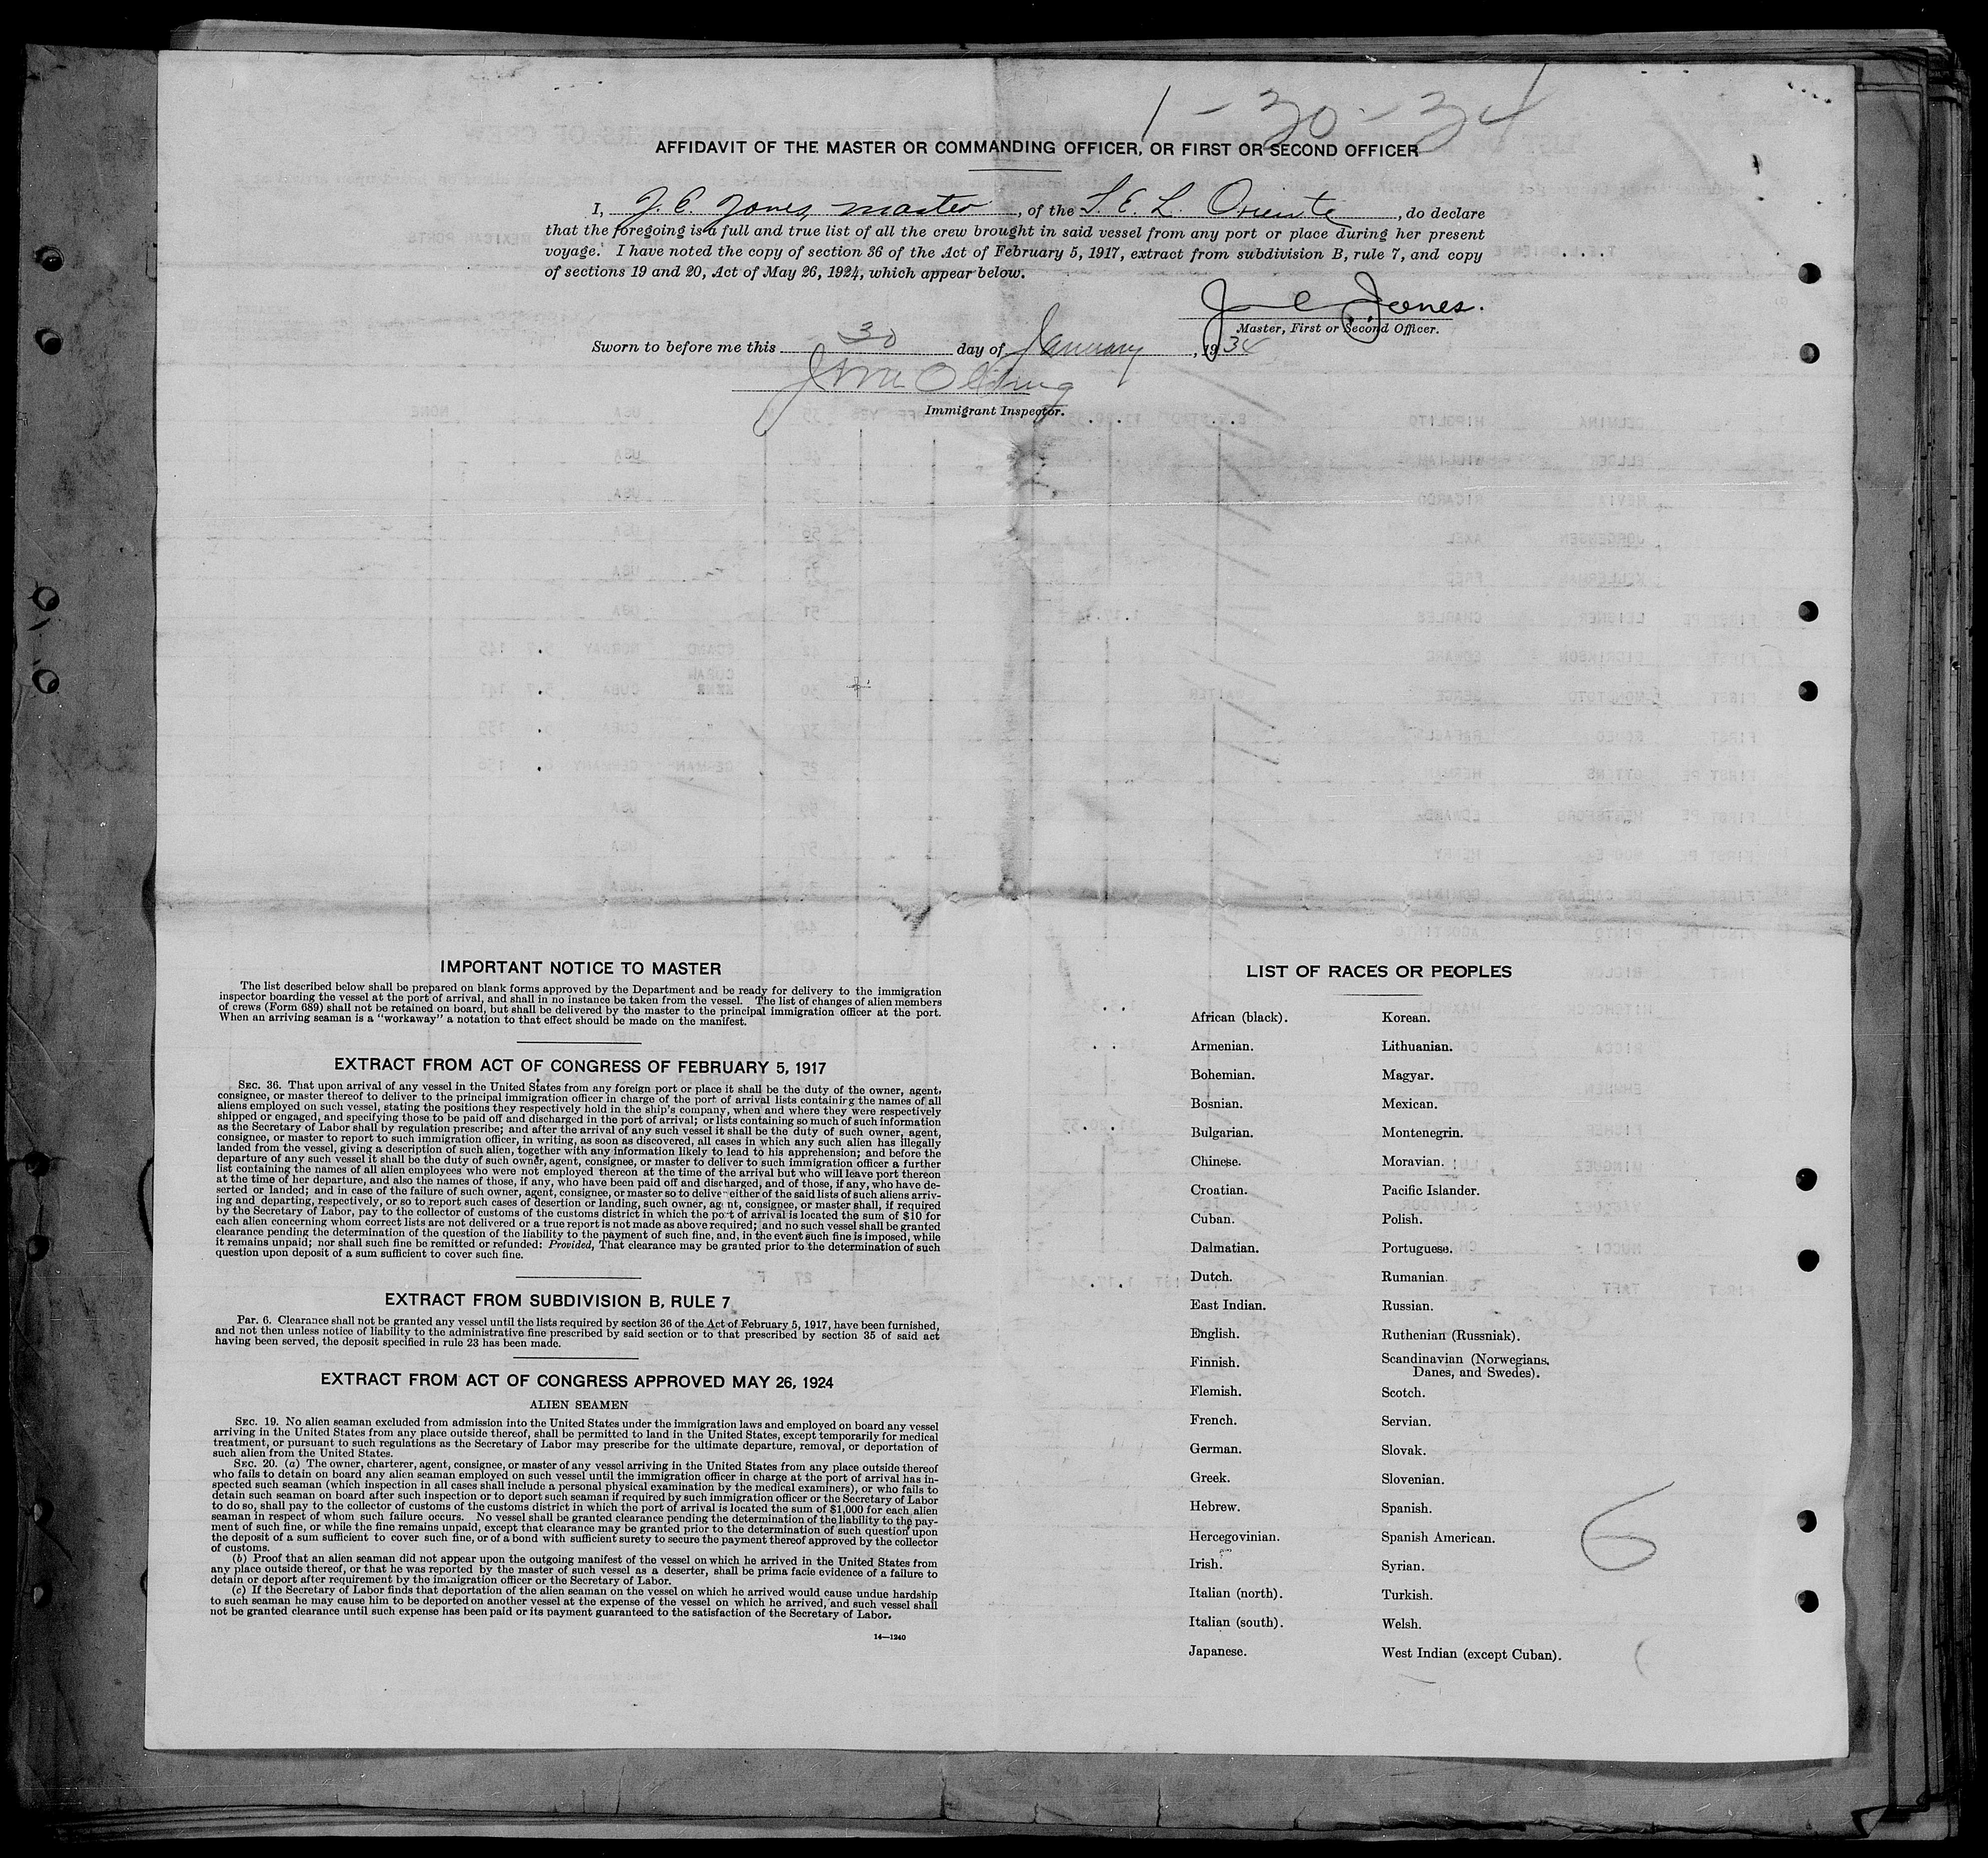 1-30-34
AFFIDAVIT OF THE MASTER OR COMMANDING OFFICER, OR FIRST OR SECOND OFFICER
I, J. E. Jones, master, of the T. E. L. Oriente, do declare
that the foregoing is a full and true list of all the crew brought in said vessel from any port or place during her present
voyage. I have noted the copy of section 36 of the Act of February 5, 1917, extract from subdivision B, rule 7, and copy
of sections 19 and 20, Act of May 26, 1924, which appear below.
Jones.
Master, First or Second Officer.
Sworn to before me this 30 day of January, 1934
Immigrant Inspector.
IMPORTANT NOTICE TO MASTER
The list described below shall be prepared on blank forms approved by the Department and be ready for delivery to the immigration
inspector boarding the vessel at the port of arrival, and shall in no instance be taken from the vessel. The list of changes of alien members
of crews (Form 689) shall not be retained on board, but shall be delivered by the master to the principal immigration officer at the port.
When an arriving seaman is a "workaway" a notation to that effect should be made on the manifest.
EXTRACT FROM ACT OF CONGRESS OF FEBRUARY 5, 1917
SEC. 36. That upon arrival of any vessel in the United States from any foreign port or place it shall be the duty of the owner, agent,
consignee, or master thereof to deliver to the principal immigration officer in charge of the port of arrival lists containing the names of all
aliens employed on such vessel, stating the positions they respectively hold in the ship's company, when and where they were respectively
shipped or engaged, and specifying those to be paid off and discharged in the port of arrival; or lists containing so much of such information
as the Secretary of Labor shall by regulation prescribe; and after the arrival of any such vessel it shall be the duty of such owner, agent,
consignee, or master to report to such immigration officer, in writing, as soon as discovered, all cases in which any such alien has illegally
landed from the vessel, giving a description of such alien, together with any information likely to lead to his apprehension; and before the
departure of any such vessel it shall be the duty of such owner, agent, consignee, or master to deliver to such immigration officer a further
list containing the names of all alien employees who were not employed thereon at the time of the arrival but who will leave port thereon
at the time of her departure, and also the names of those, if any, who have been paid off and discharged, and of those, if any, who have de-
serted or landed; and in case of the failure of such owner, agent, consignee, or master so to deliver either of the said lists of such aliens arriv-
ing and departing, respectively, or so to report such cases of desertion or landing, such owner, agent, consignee, or master shall, if required
by the Secretary of Labor, pay to the collector of customs of the customs district in which the port of arrival is located the sum of $10 for
each alien concerning whom correct lists are not delivered or a true report is not made as above required; and no such vessel shall be granted
clearance pending the determination of the question of the liability to the payment of such fine, and, in the event such fine is imposed, while
it remains unpaid; nor shall such fine be remitted or refunded: Provided, That clearance may be granted prior to the determination of such
question upon deposit of a sum sufficient to cover such fine.
EXTRACT FROM SUBDIVISION B, RULE 7
Par. 6. Clearance shall not be granted any vessel until the lists required by section 36 of the Act of February 5, 1917, have been furnished,
and not then unless notice of liability to the administrative fine prescribed by said section or to that prescribed by section 35 of said act
having been served, the deposit specified in rule 23 has been made.
EXTRACT FROM ACT OF CONGRESS APPROVED MAY 26, 1924
ALIEN SEAMEN
SEC. 19. No alien seaman excluded from admission into the United States under the immigration laws and employed on board any vessel
arriving in the United States from any place outside thereof, shall be permitted to land in the United States, except temporarily for medical
treatment, or pursuant to such regulations as the Secretary of Labor may prescribe for the ultimate departure, removal, or deportation of
such alien from the United States.
SEC. 20. (a) The owner, charterer, agent, consignee, or master of any vessel arriving in the United States from any place outside thereof
who fails to detain on board any alien seaman employed on such vessel until the immigration officer in charge at the port of arrival has in-
spected such seaman (which inspection in all cases shall include a personal physical examination by the medical examiners), or who fails to
detain such seaman on board after such inspection or to deport such seaman if required by such immigration officer or the Secretary of Labor
to do so, shall pay to the collector of customs of the customs district in which the port of arrival is located the sum of $1,000 for each alien
seaman in respect of whom such failure occurs. No vessel shall be granted clearance pending the determination of the liability to the pay-
ment of such fine, or while the fine remains unpaid, except that clearance may be granted prior to the determination of such question upon
the deposit of a sum sufficient to cover such fine, or of a bond with sufficient surety to secure the payment thereof approved by the collector
of customs.
(b) Proof that an alien seaman did not appear upon the outgoing manifest of the vessel on which he arrived in the United States from
any place outside thereof, or that he was reported by the master of such vessel as a deserter, shall be prima facie evidence of a failure to
detain or deport after requirement by the immigration officer or the Secretary of Labor.
(c) If the Secretary of Labor finds that deportation of the alien seaman on the vessel on which he arrived would cause undue hardship
to such seaman he may cause him to be deported on another vessel at the expense of the vessel on which he arrived, and such vessel shall
not be granted clearance until such expense has been paid or its payment guaranteed to the satisfaction of the Secretary of Labor.
14—1240
LIST OF RACES OR PEOPLES
African (black).
Armenian.
Bohemian.
Bosnian.
Bulgarian.
Chinese.
Croatian.
Cuban.
Dalmatian.
Dutch.
East Indian.
English.
Finnish.
Flemish.
French.
German.
Greek.
Hebrew.
Hercegovinian.
Irish.
Italian (north).
Italian (south).
Japanese.
Korean.
Lithuanian.
Magyar.
Mexican.
Montenegrin.
Moravian.
Pacific Islander.
Polish.
Portuguese.
Rumanian.
Russian.
Ruthenian (Russniak).
Scandinavian (Norwegians,
Danes, and Swedes).
Scotch.
Servian.
Slovak.
Slovenian.
Spanish.
Spanish American.
Syrian.
Turkish.
Welsh.
West Indian (except Cuban).
6